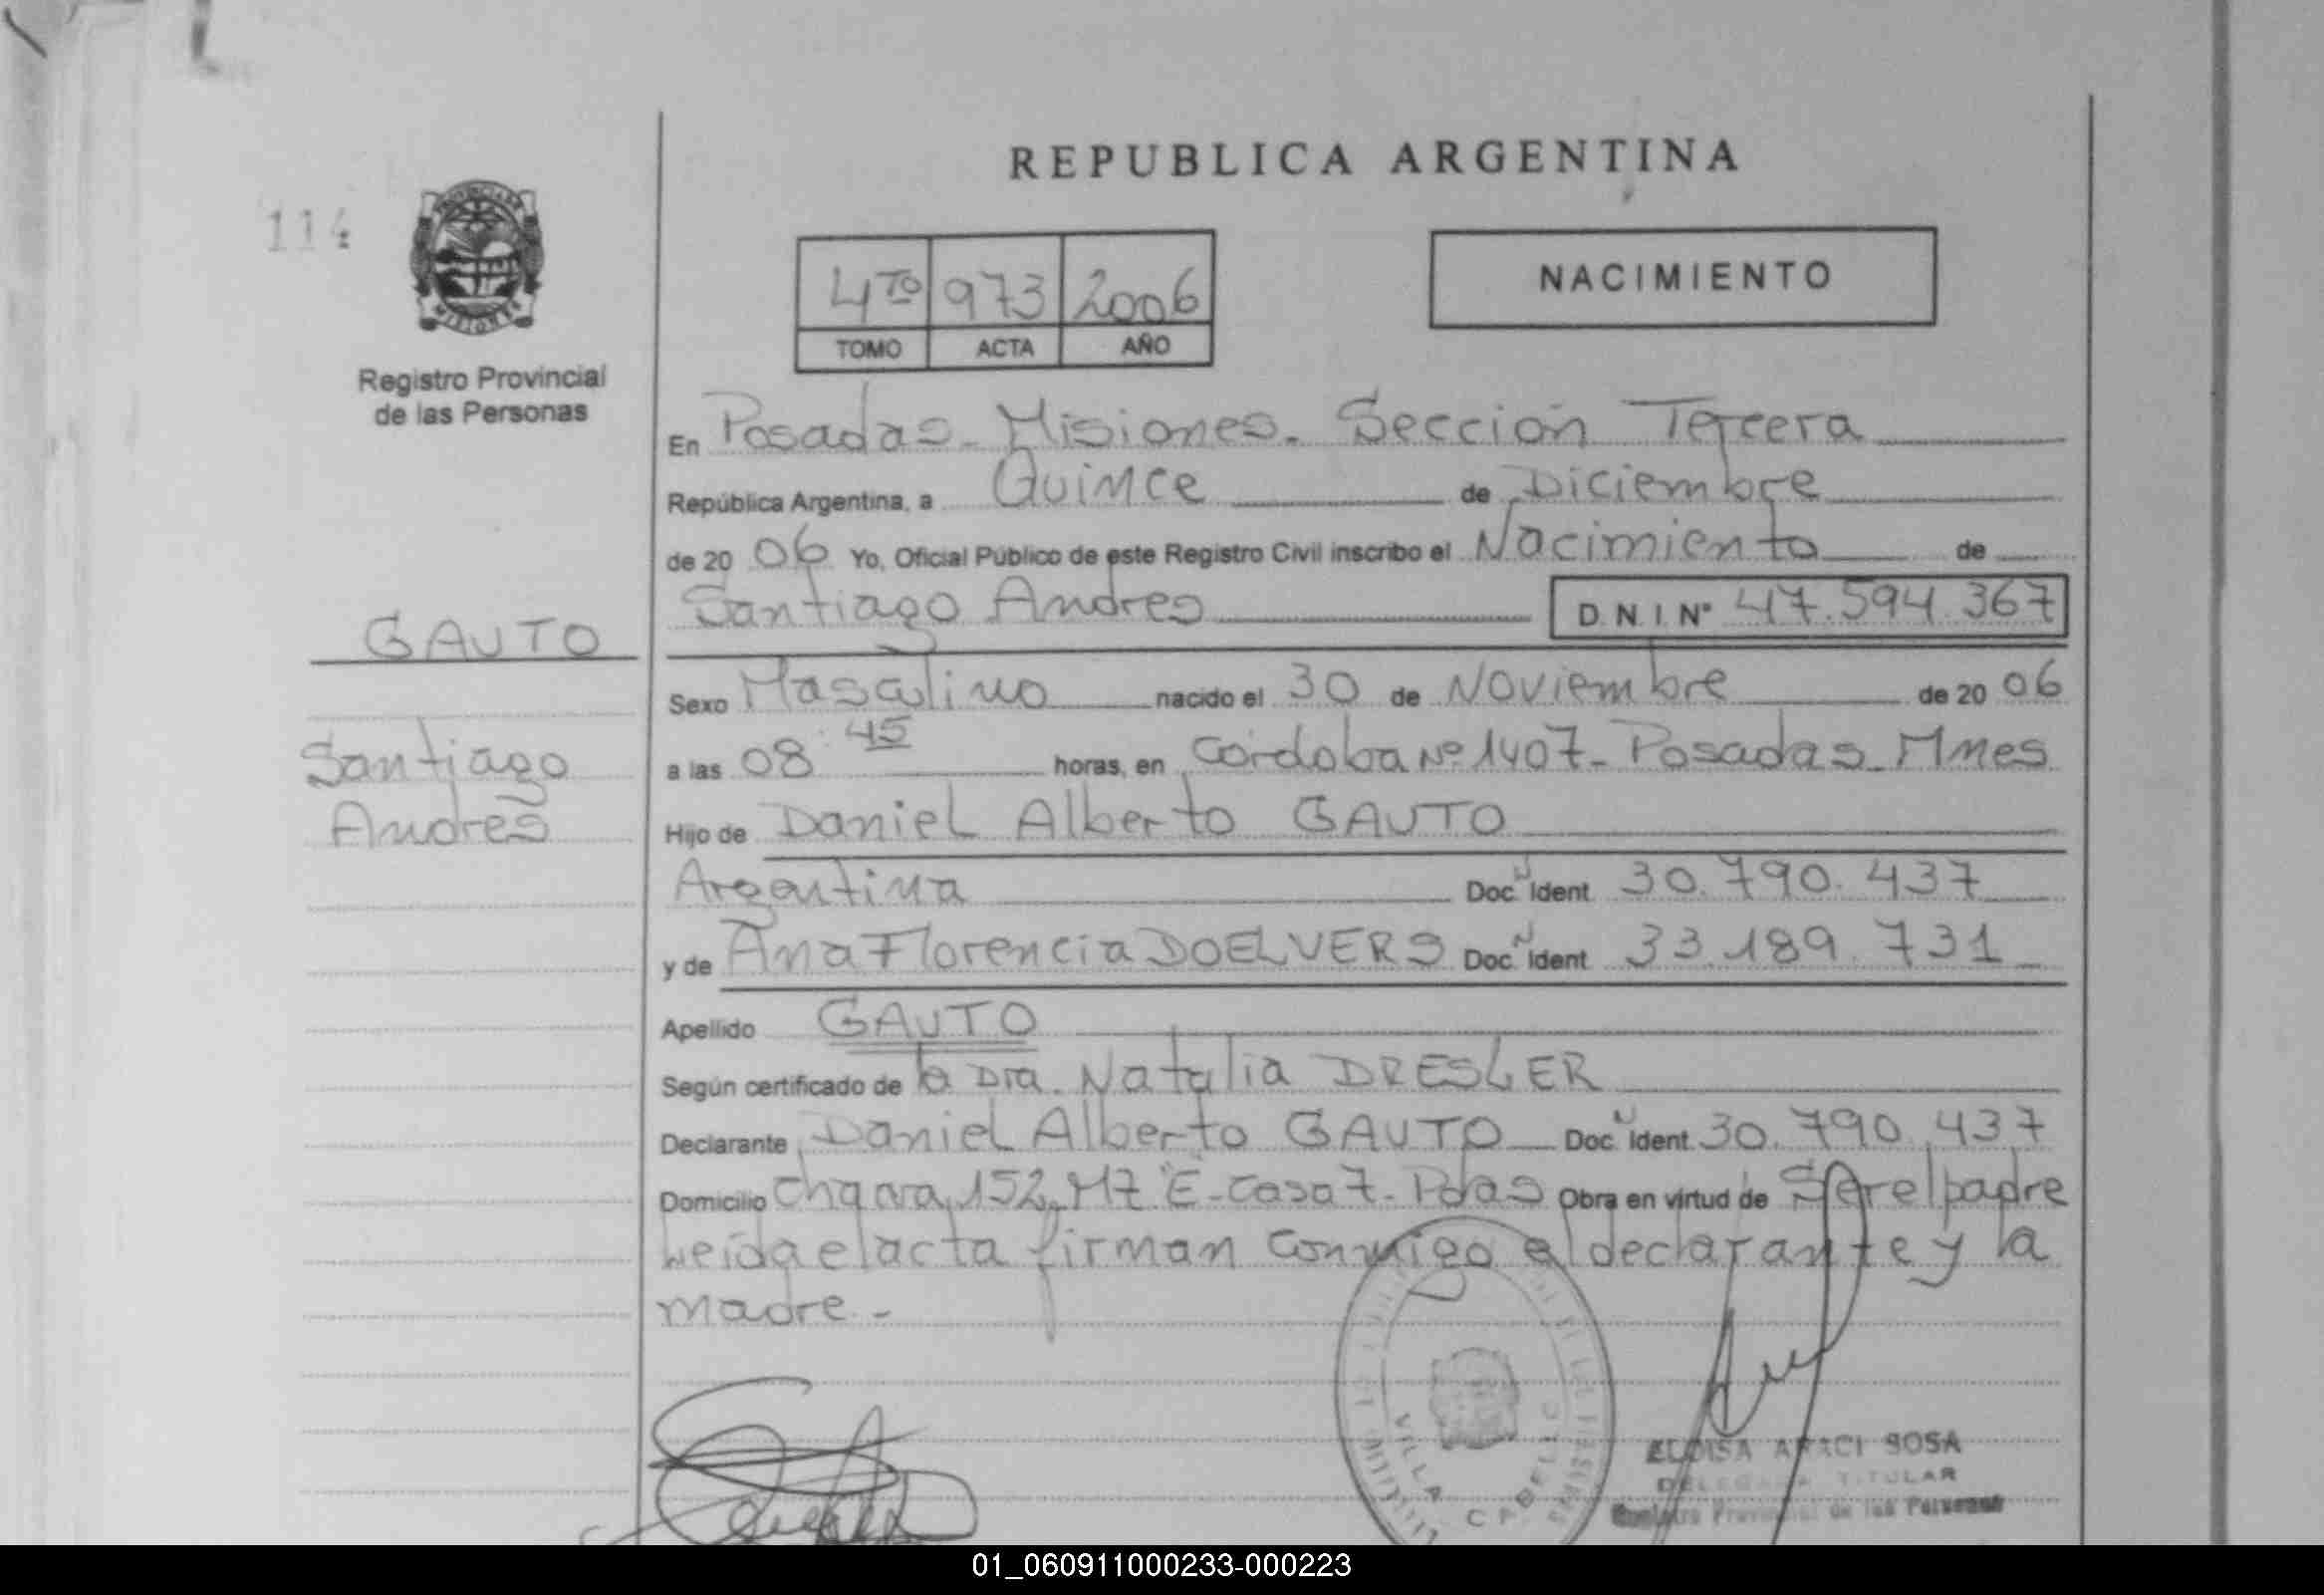 REPUBLICA ARGENTINA
114
4TO 973 2006
TOMO ACTA AÑO
NACIMIENTO
PROVINCIA DE
MISIONES
Registro Provincial
de las Personas
En Posadas - Misiones - Sección Tercera
República Argentina, a Quince de Diciembre
de 20 06 Yo, Oficial Público de este Registro Civil inscribo el Nacimiento de
Santiago Andres D.N.I. N° 47.594.367
GAUTO
Santiago
Andres
Sexo Masculino nacido el 30 de Noviembre de 20 06
a las 08:45 horas, en Córdoba Nº 1407 - Posadas - Mnes
Hijo de Daniel Alberto GAUTO
Argentina Doc. N Ident 30.790.437
y de Ana Florencia DOELVERS Doc. N Ident 33.189.731
Apellido GAUTO
Según certificado de la Dra. Natalia DRESLER
Declarante Daniel Alberto GAUTO Doc. N Ident. 30.790.437
Domicilio Chacra 152 M7 "E" - Casa 7 - Pdas Obra en virtud de Ser el padre
Leída el acta firman conmigo el declarante y la
madre.-
VILLA CABELLO
ELOISA ARACI SOSA
DELEGADA TITULAR
Registro Provincial de las Personas
01_060911000233-000223